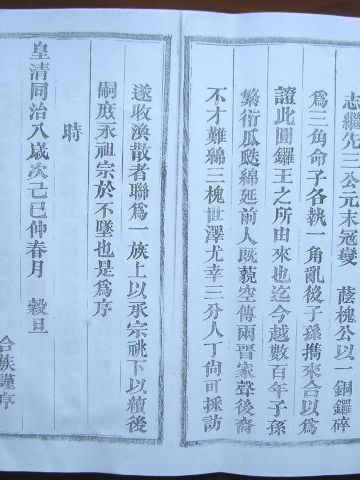 志繼先三公元末寇變　蔭槐公以一銅鑼碎
為三角命子各執一角亂後子孫攜來合以為
證此圓鑼王之所由來也迄今越數百年子孫
繁衍瓜瓞綿延前人既藐空傳兩晋家聲後裔
不才難綿三槐世澤尤幸三分人丁尚可採訪
遂收渙散者聯為一族上以承宗祧下以續後
嗣庶承祖宗於不墜也是為序
時
皇清同治八歲次己巳仲春月　穀旦
合族謹序